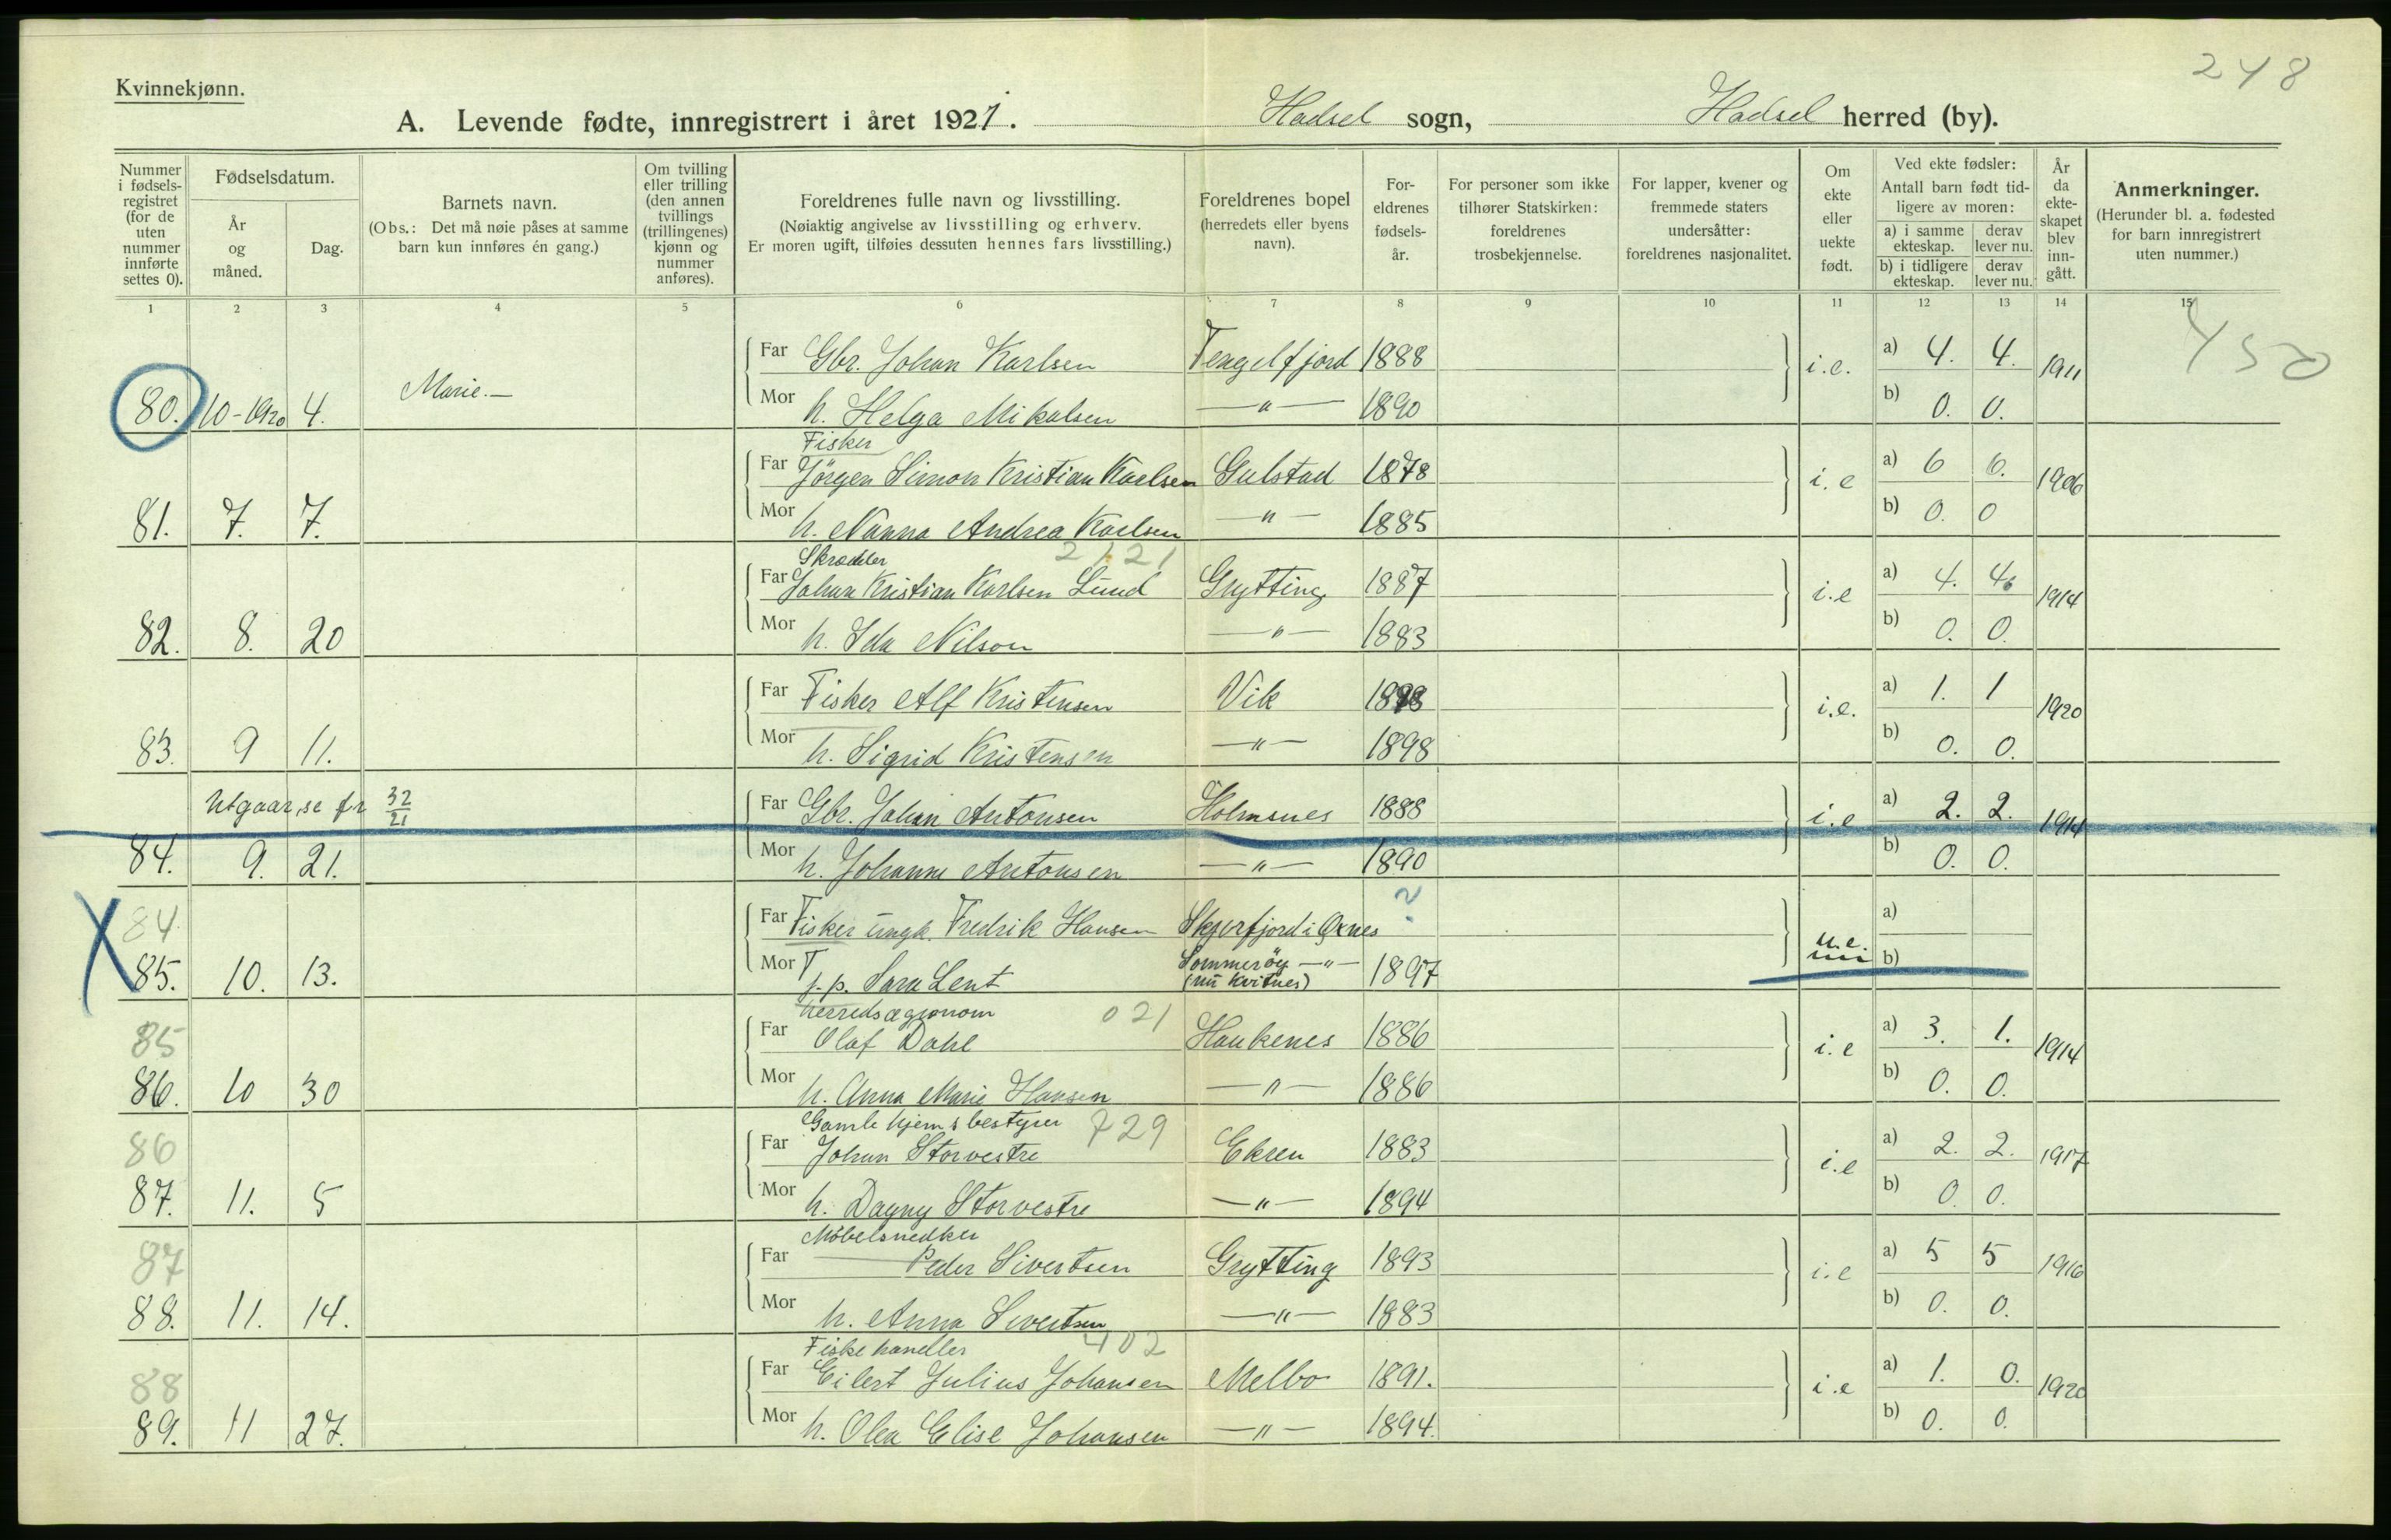 248
Kvinnekjønn.
A. Levende fødte, innregistrert i året 1921. Hadsel sogn, Hadsel herred (by).
Nummer i fødsels-registret (for de uten nummer innførte settes 0).
Fødselsdatum.
År og måned.
Dag.
Barnets navn.
(Obs.: Det må nøie påses at samme barn kun innføres én gang.)
Om tvilling eller trilling (den annen tvillings (trillingenes) kjønn og nummer anføres).
Foreldrenes fulle navn og livsstilling.
(Nøiaktig angivelse av livsstilling og erhverv. Er moren ugift, tilføies dessuten hennes fars livsstilling.)
Foreldrenes bopel (herredets eller byens navn).
For-eldrenes fødsels-år.
For personer som ikke tilhører Statskirken: foreldrenes trosbekjennelse.
For lapper, kvener og fremmede staters undersåtter: foreldrenes nasjonalitet.
Om ekte eller uekte født.
Ved ekte fødsler:
Antall barn født tid-ligere av moren:
a) i samme ekteskap. derav lever nu.
b) i tidligere ekteskap. derav lever nu.
År da ekte-skapet blev inn-gått.
Anmerkninger.
(Herunder bl. a. fødested for barn innregistrert uten nummer.)
1 2 3 4 5 6 7 8 9 10 11 12 13 14 15
Far Gbr. Johan Karlsen Tengelfjord 1888 i.e. a) 4. 4. 1911 450
80. 10-1920 4. Marie.— Mor h. Helga Mikalsen —"— 1890 b) 0. 0.
Fisker
Far Jörgen Simon Kristian Karlsen Gulstad 1878 i.e a) 6 6. 1906
81. 7. 7. Mor h. Nanna Andrea Karlsen —"— 1885 b) 0. 0
Skrædder 2121
Far Johan Kristian Karlsen Lund Grytting 1887 i.e a) 4. 4. 1914
82. 8. 20 Mor h. Ida Nilson —"— 1883 b) 0. 0.
Far Fisker Alf Kristensen Vik 1898 i.e. a) 1. 1 1920
83. 9 11. Mor h. Sigrid Kristensen —"— 1898 b) 0. 0.
Utgaar, se fr 32/21 Far Gbr. Johan Antonsen Holmsnes 1888 i.e a) 2. 2. 1914
84. 9. 21. Mor h. Johanne Antonsen —"— 1890 b) 0. 0.
84 Far Fisker ungk. Fredrik Hansen Skjerfjord i Öxnes ? a)
X 85. 10. 13. Mor p.p. Sara Lent Sommeröy —"— 1897 u.e. b)
(nu Kvitnes)
Herredsagronom 021
85 Far Olaf Dahl Haukenes 1886 i.e a) 3. 1. 1914
86. 10 30 Mor h. Anna Marie Hansen —"— 1886 b) 0. 0.
Gamlehjemsbestyrer 729
86 Far Johan Storvestre Ekren 1883 i.e a) 2. 2. 1917
87. 11. 5 Mor h. Dagny Storvestre —"— 1894 b) 0 0.
Möbelsnedker
87 Far Peder Sivertsen Grytting 1893 i.e a) 5 5 1916
88. 11. 14. Mor h. Anna Sivertsen —"— 1883 b) 0. 0.
Fiskehandler 402
88 Far Eilert Julius Johansen Melbo 1891. i.e a) 1. 0. 1920
89. 11 27. Mor h. Olea Elise Johansen —"— 1894. b) 0. 0.